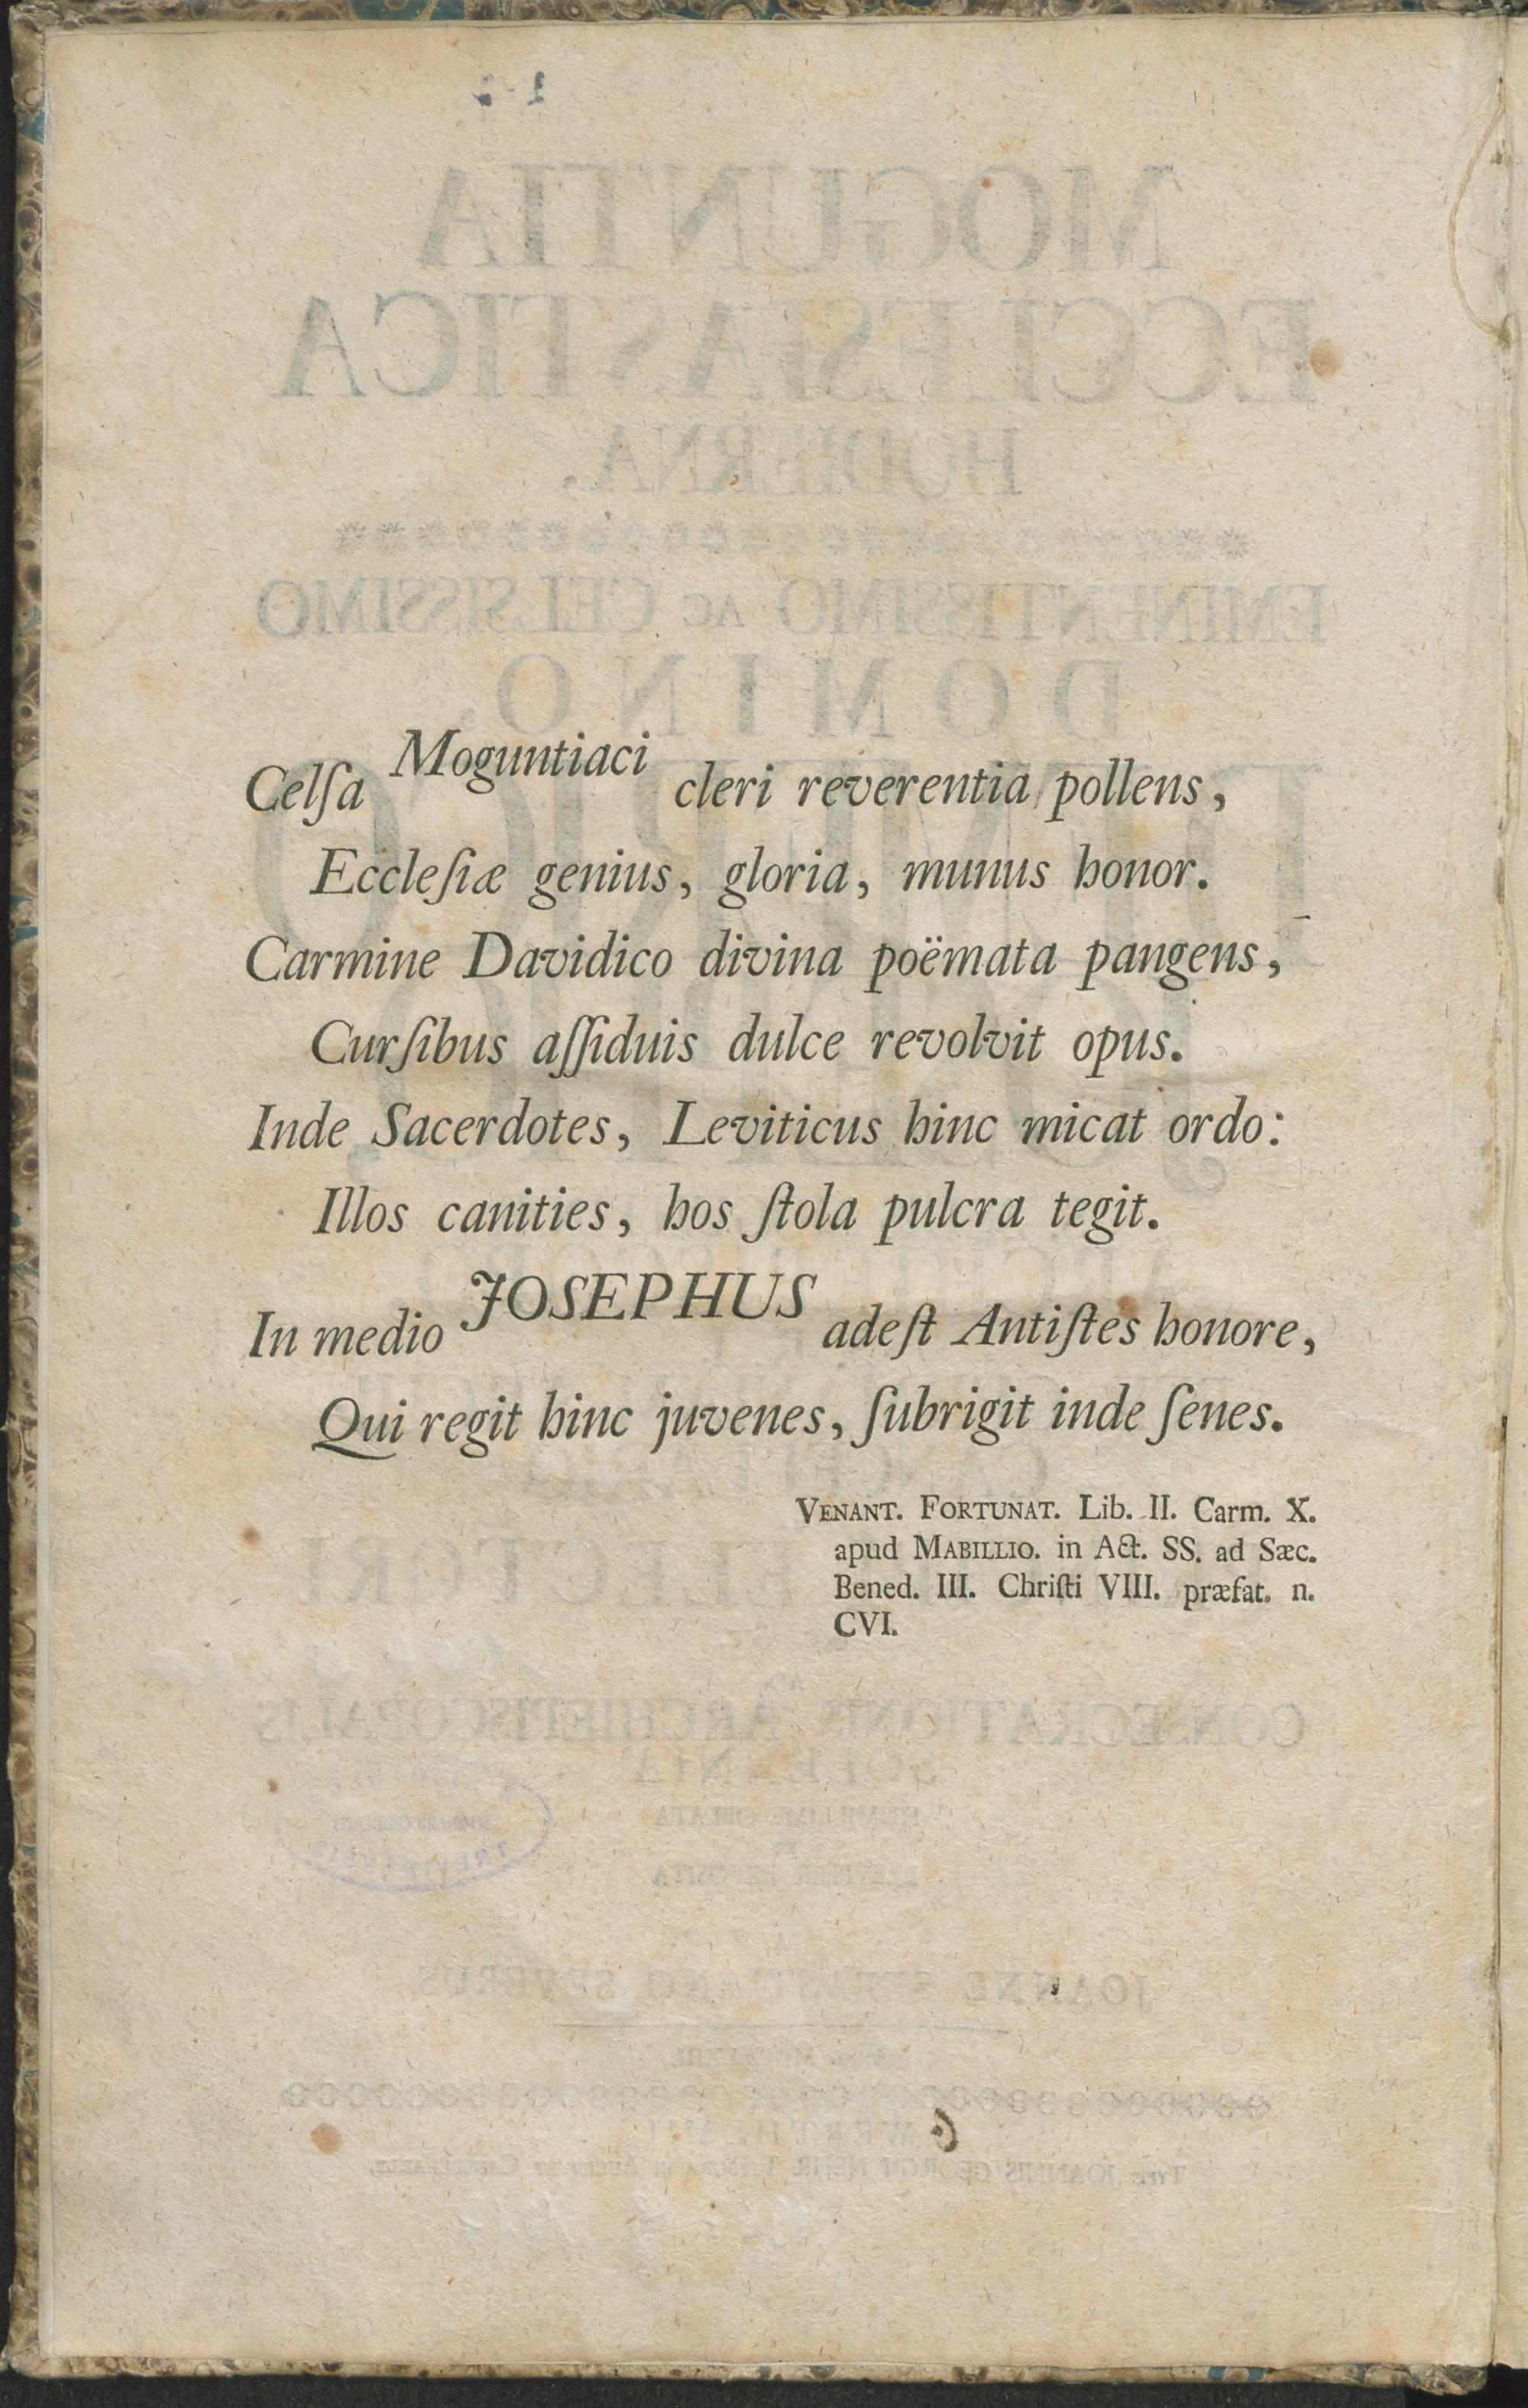 Celſa Moguntiaci cleri reverentia pollens,
Eccleſiæ genius, gloria, munus honor.
Carmine Davidico divina poëmata pangens,
Curſibus aſſiduis dulce revolvit opus.
Inde Sacerdotes, Leviticus hinc micat ordo:
Illos canities, hos ſtola pulcra tegit.
In medio JOSEPHUS adeſt Antiſtes honore,
Qui regit hinc juvenes, ſubrigit inde ſenes.
VENANT. FORTUNAT. Lib. II. Carm. X.
apud MABILLIO. in Act. SS. ad Sæc.
Bened. III. Chriſti VIII. præfat. n.
CVI.